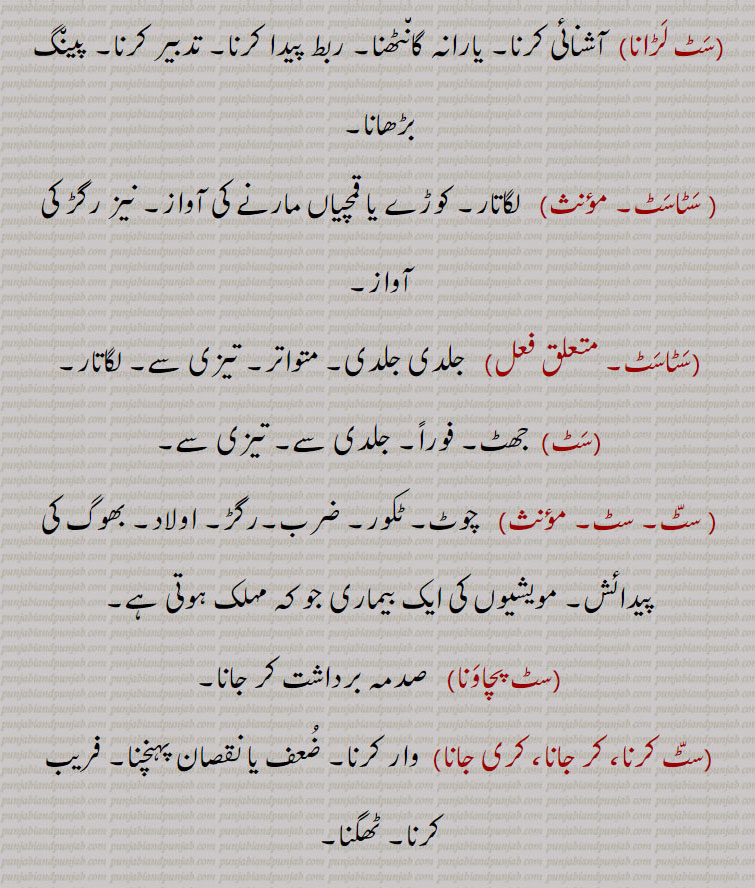 (سَٹ لَڑانا) آشنائی کرنا۔ یارانہ گانٹھنا۔ ربط پیدا کرنا۔ تدبیر کرنا۔ پینگ
بڑھانا۔
( سَٹاسَٹ۔ مؤنث) لگاتار۔ کوڑے یا قمچیاں مارنے کی آواز۔ نیز رگڑ کی
آواز۔
(سَٹاسَٹ۔ متعلق فعل) جلدی جلدی۔ متواتر۔ تیزی سے۔ لگاتار۔
(سَٹ) جھٹ۔ فوراً۔ جلدی سے۔ تیزی سے۔
( سٹّ۔ سٹ۔ مؤنث) چوٹ۔ ٹکور۔ ضرب۔رگڑ۔ اولاد۔ بھوگ کی
پیدائش۔ مویشیوں کی ایک بیماری جو کہ مہلک ہوتی ہے۔
(سٹ پچاوَنا) صدمہ برداشت کر جانا۔
(سٹّ کرنا، کر جانا، کری جانا) وار کرنا۔ ضُعف یا نقصان پہنچنا۔ فریب
کرنا۔ ٹھگنا۔